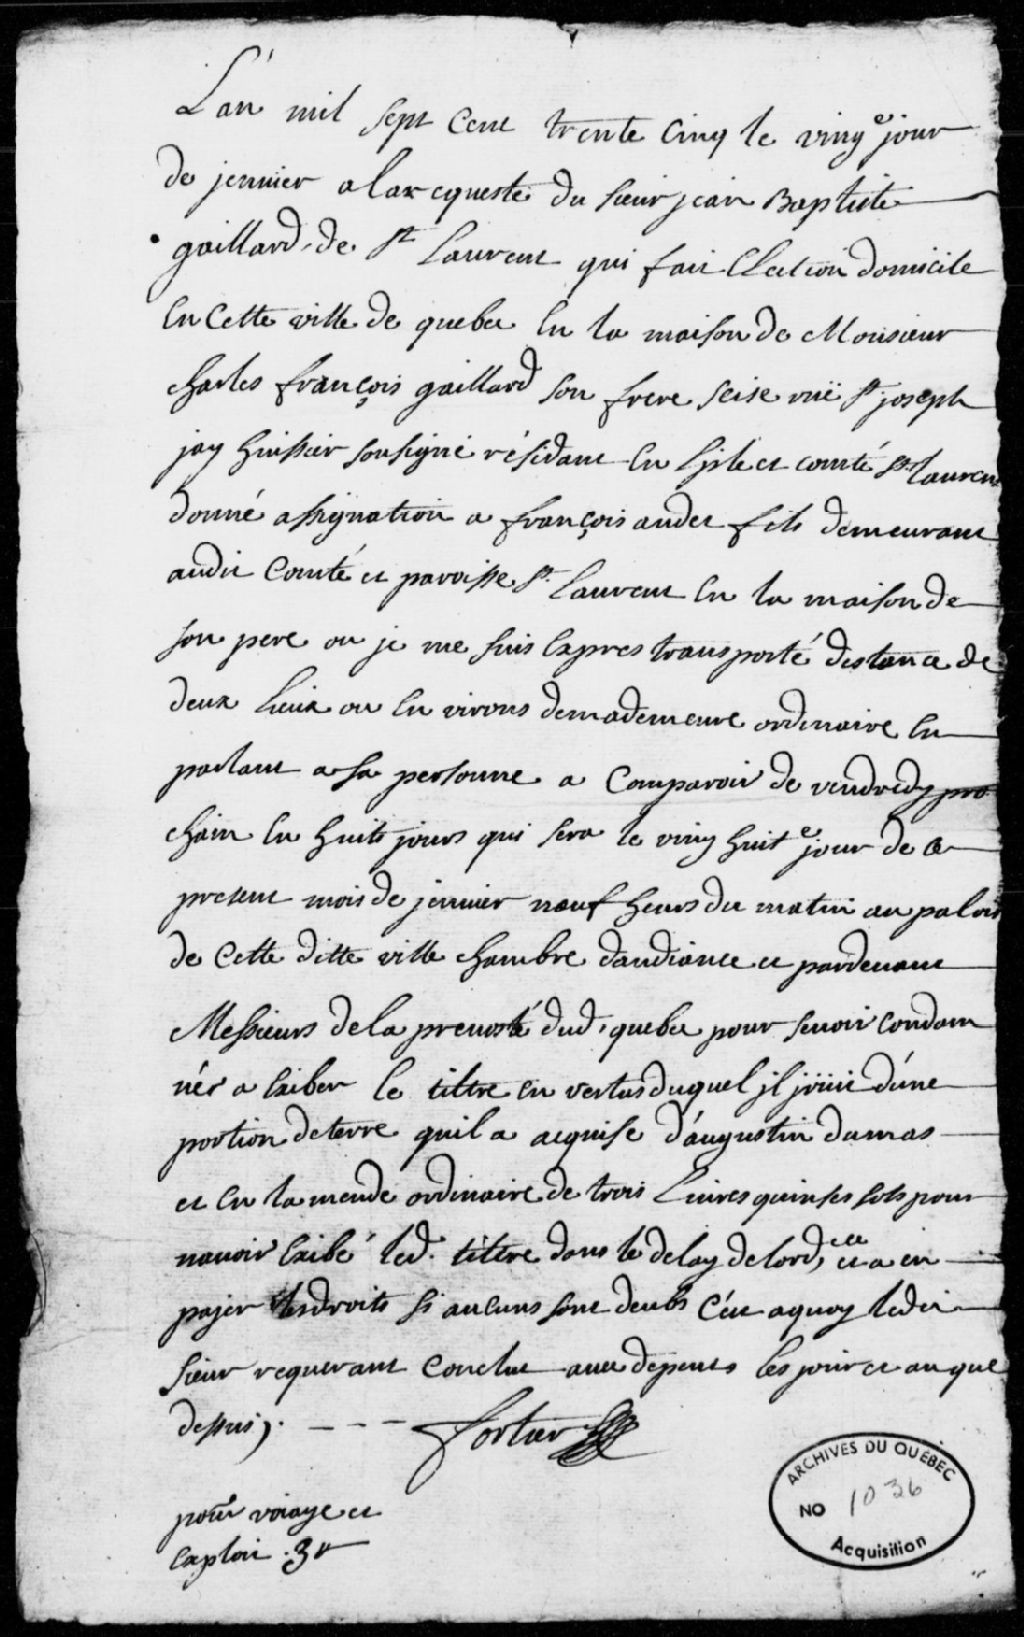 L'an mil sept cent trente cinq le ving.e jour
de jennier a lar equeste du sieur jean Baptiste
gaillard de St Laurent qui fait Election domicile
En Cette ville de quebec En la maison de Monsieur
charles françois gaillard son frere scise ruë St joseph
jay huissier sousigné résidant En lisle et comté St Laurent
donné assignation a françois audet fils demeurant
audit Comté et paroisse St Laurent En la maison de
son pere ou je me suis Expres transporté distance de
deux Lieux ou En virons demademeure ordinaire En
parlant a sa personne a Comparoir de vendredy pro
chain En huits jours qui sera le ving huit.e jour de ce
present mois de jennier neuf heurs du matin au palais
de Cette ditte ville chambre daudiance et pardevant
Messieurs dela prevosté dud. quebec pour sevoir condam
nér a Exiber le tiltre En vertus duquel jl joüie d'une
portion de terre quil a acquise d'augustin dumas
et En lamende ordinaire de trois Livres quinses sols pour
navoir Exibé led. tiltre dans le delay delord.ce et a en
pajer les droits si aucuns sont deubs C'ée aquoy ledit
sieur requerant Conclut avec depents les jour et an que
dessus). - - - Fortier
pour voiage et
Exploit .3#
ARCHIVES DU QUÉBEC
NO 1036
Acquisition